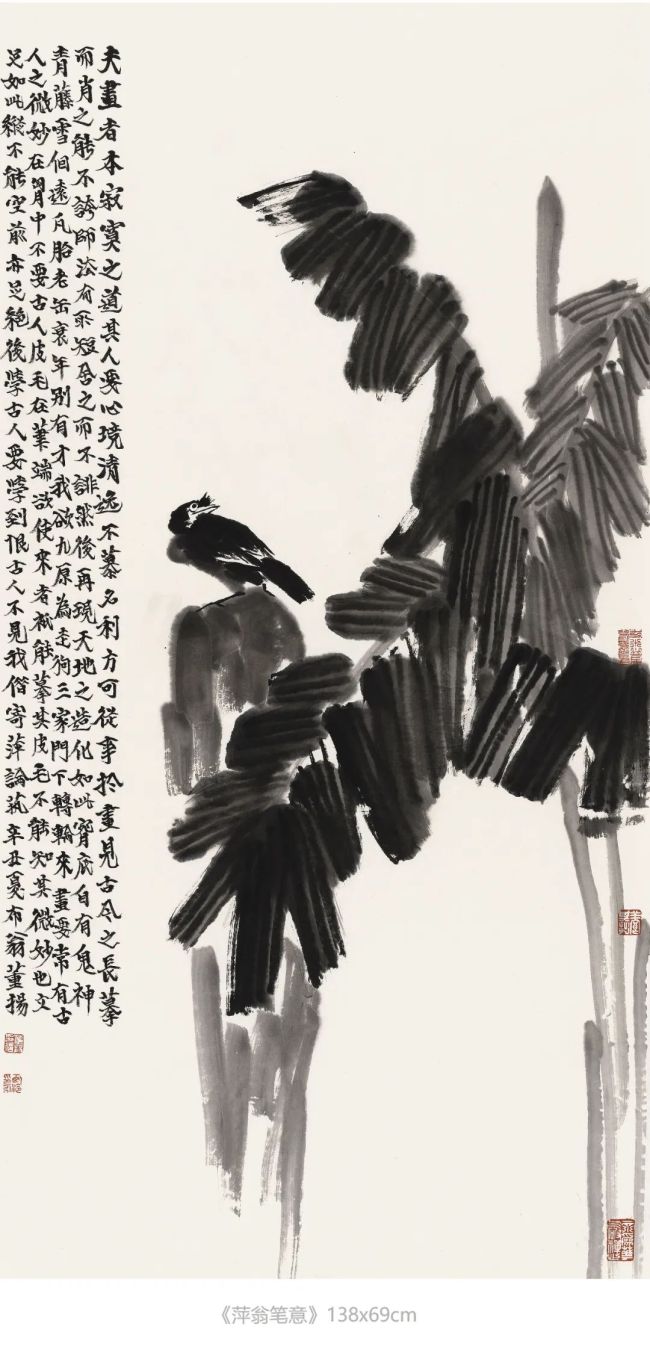 夫畫者本寂寞之道其人要心境清逸不慕名利方可從事於畫見古今之長摹
而肖之能不誇師法有所短舍之而不誹然後再現天地之造化如此腕底自有鬼神
青藤雪個遠凡胎老缶衰年別有才我欲九原為走狗三家門下轉輪來畫要常有古
人之微妙在胷中不要古人皮毛在筆端欲使來者祇能摹其皮毛不能知其微妙也立
足如此縱不能空前亦足絕後學古人要學到恨古人不見我偕寄萍論藝辛丑夏布翁董揚
《萍翁笔意》138x69cm